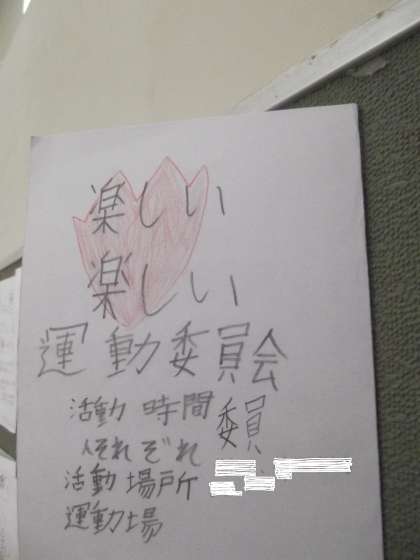 楽しい
楽しい
運動委員会
活動時間
人それぞれ
活動場所
運動場
委員